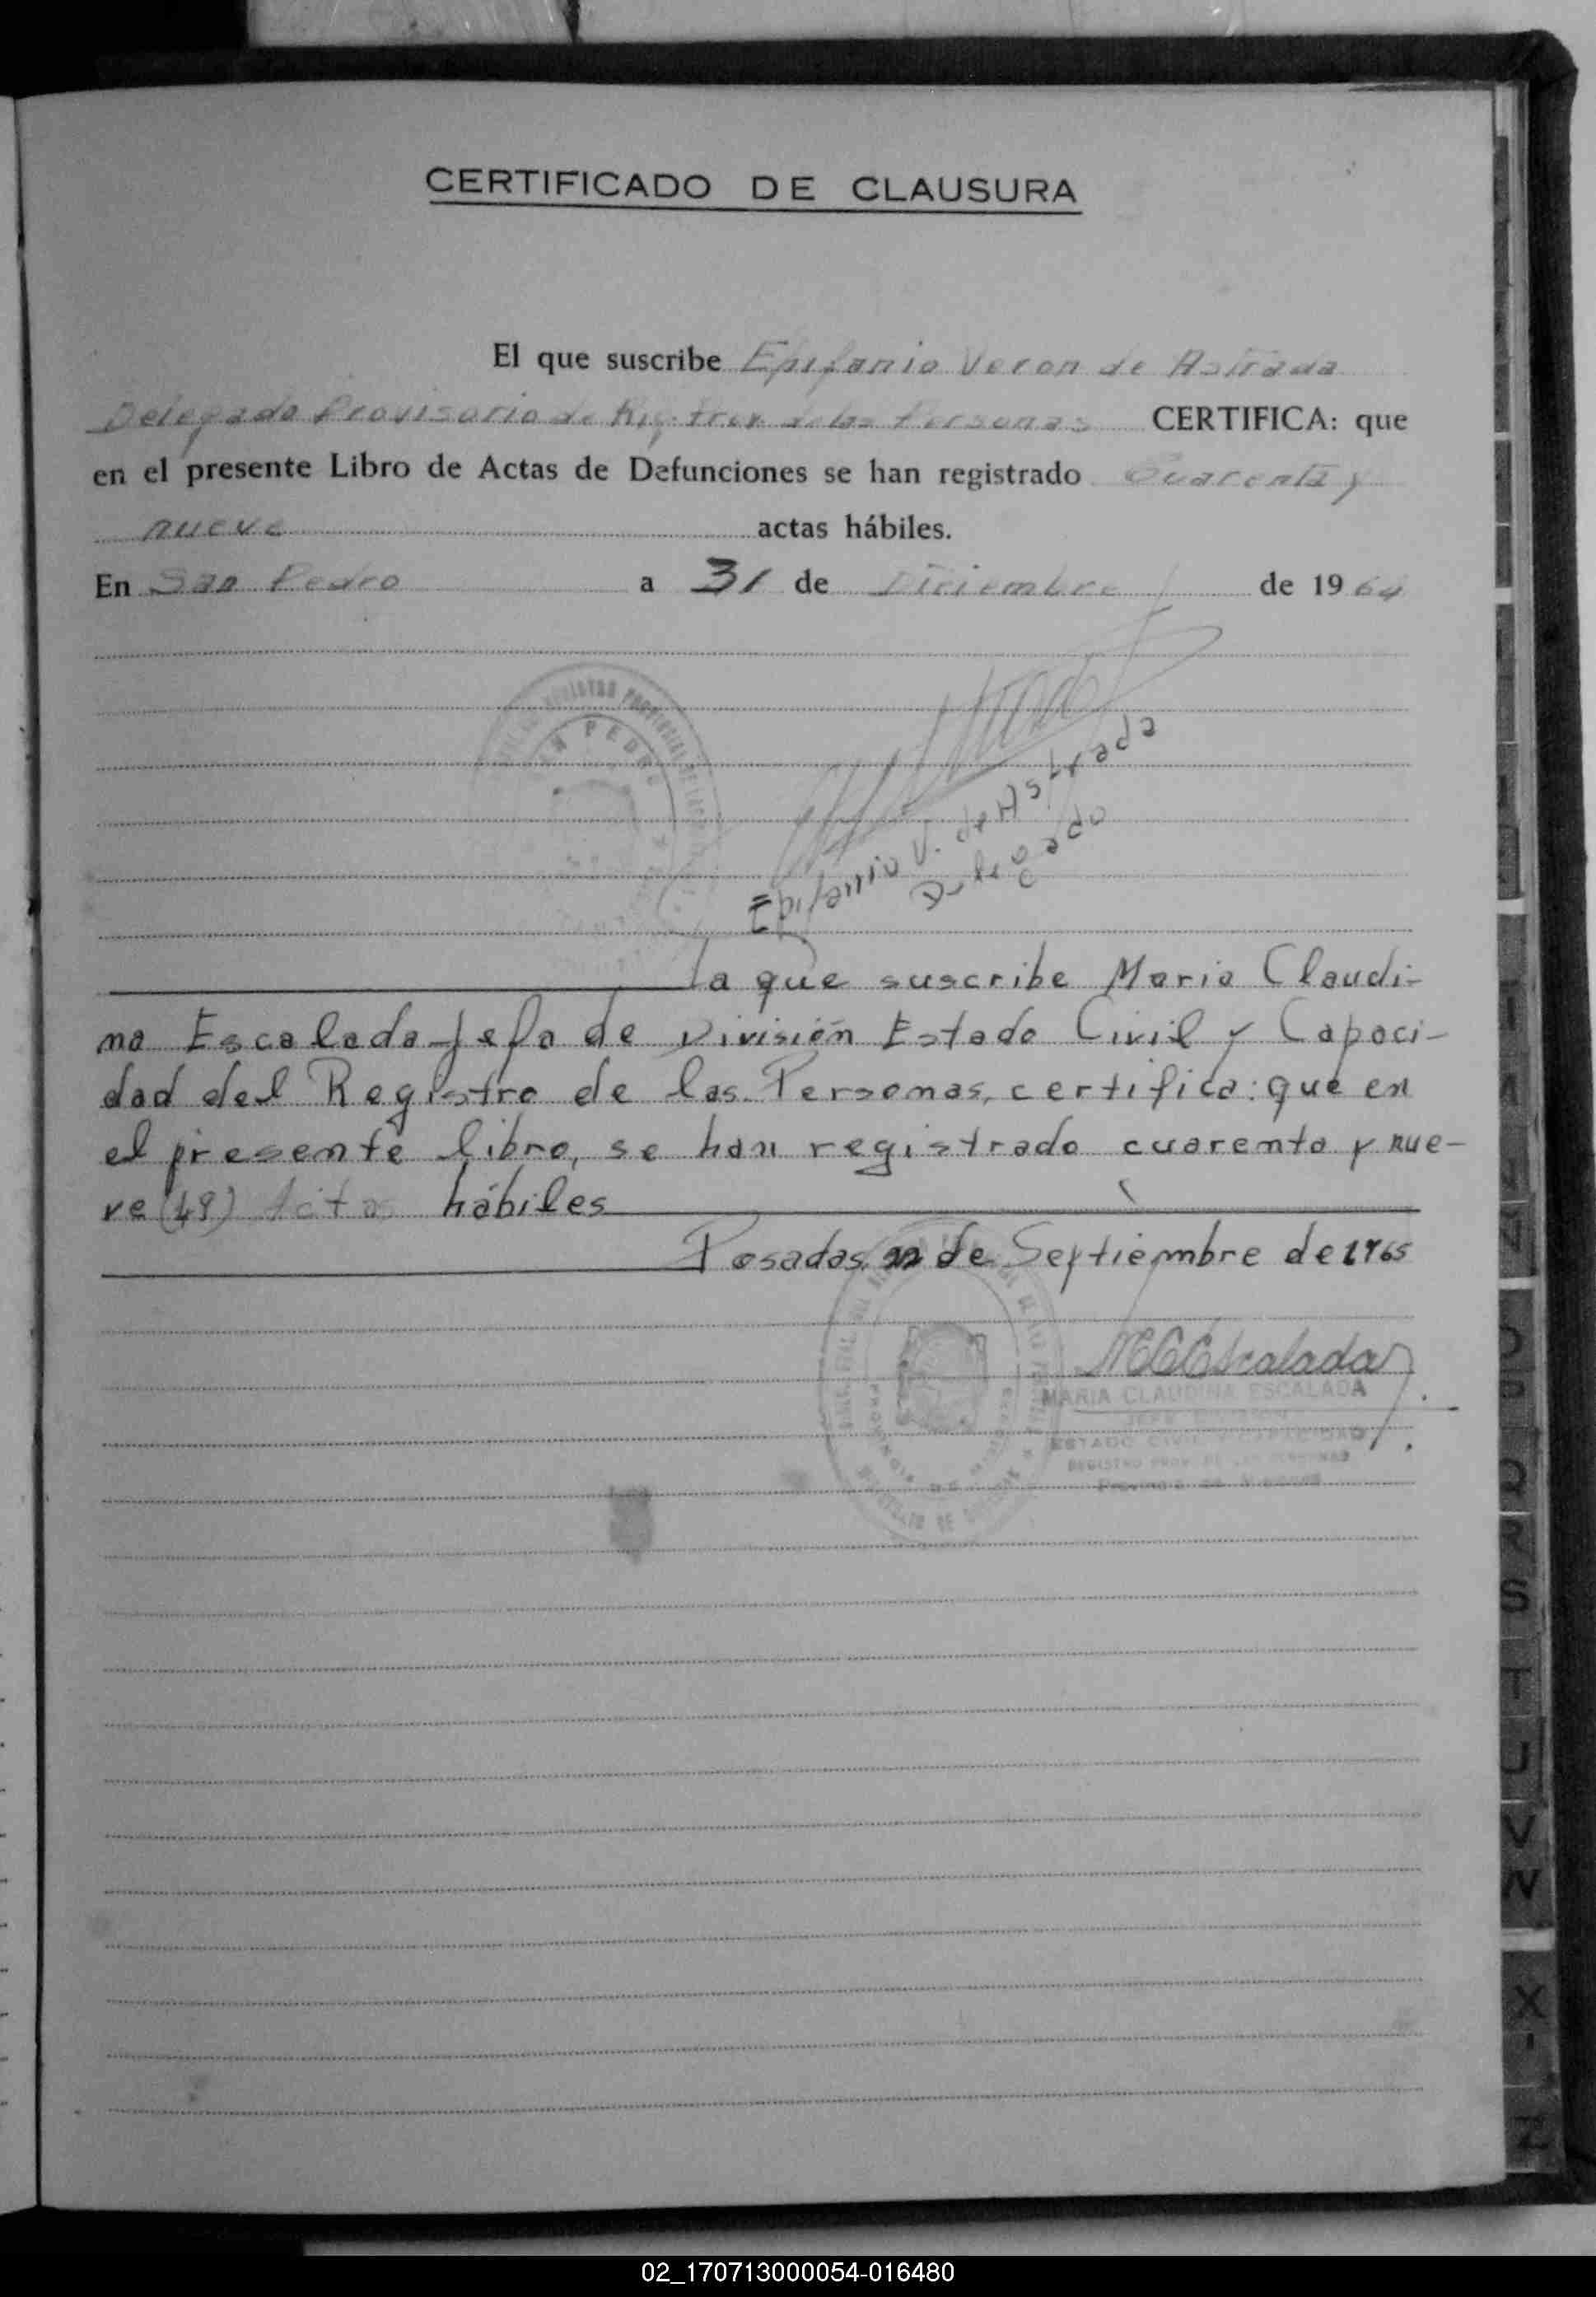 CERTIFICADO DE CLAUSURA
El que suscribe Epifanio Veron de Astrada
Delegado Provisorio de Registro de las Personas CERTIFICA: que
en el presente Libro de Actas de Defunciones se han registrado Cuarenta y
nueve actas hábiles.
En San Pedro a 31 de Diciembre de 1964
SAN PEDRO
Epifanio V. de Astrada
Delegado
La que suscribe Maria Claudi-
na Escalada Jefa de División Estado Civil y Capaci-
dad del Registro de las Personas, certifica: que en
el presente libro, se han registrado cuarenta y nue-
ve (49) Actas hábiles
Posadas, de Septiembre de 1965
MCEscalada
MARIA CLAUDINA ESCALADA
JEFE DIVISION
ESTADO CIVIL Y CAPACIDAD
REGISTRO PROV. DE LAS PERSONAS
Provincia de Misiones
O
P
Q
R
S
T
U
V
W
X
Z
02_170713000054-016480